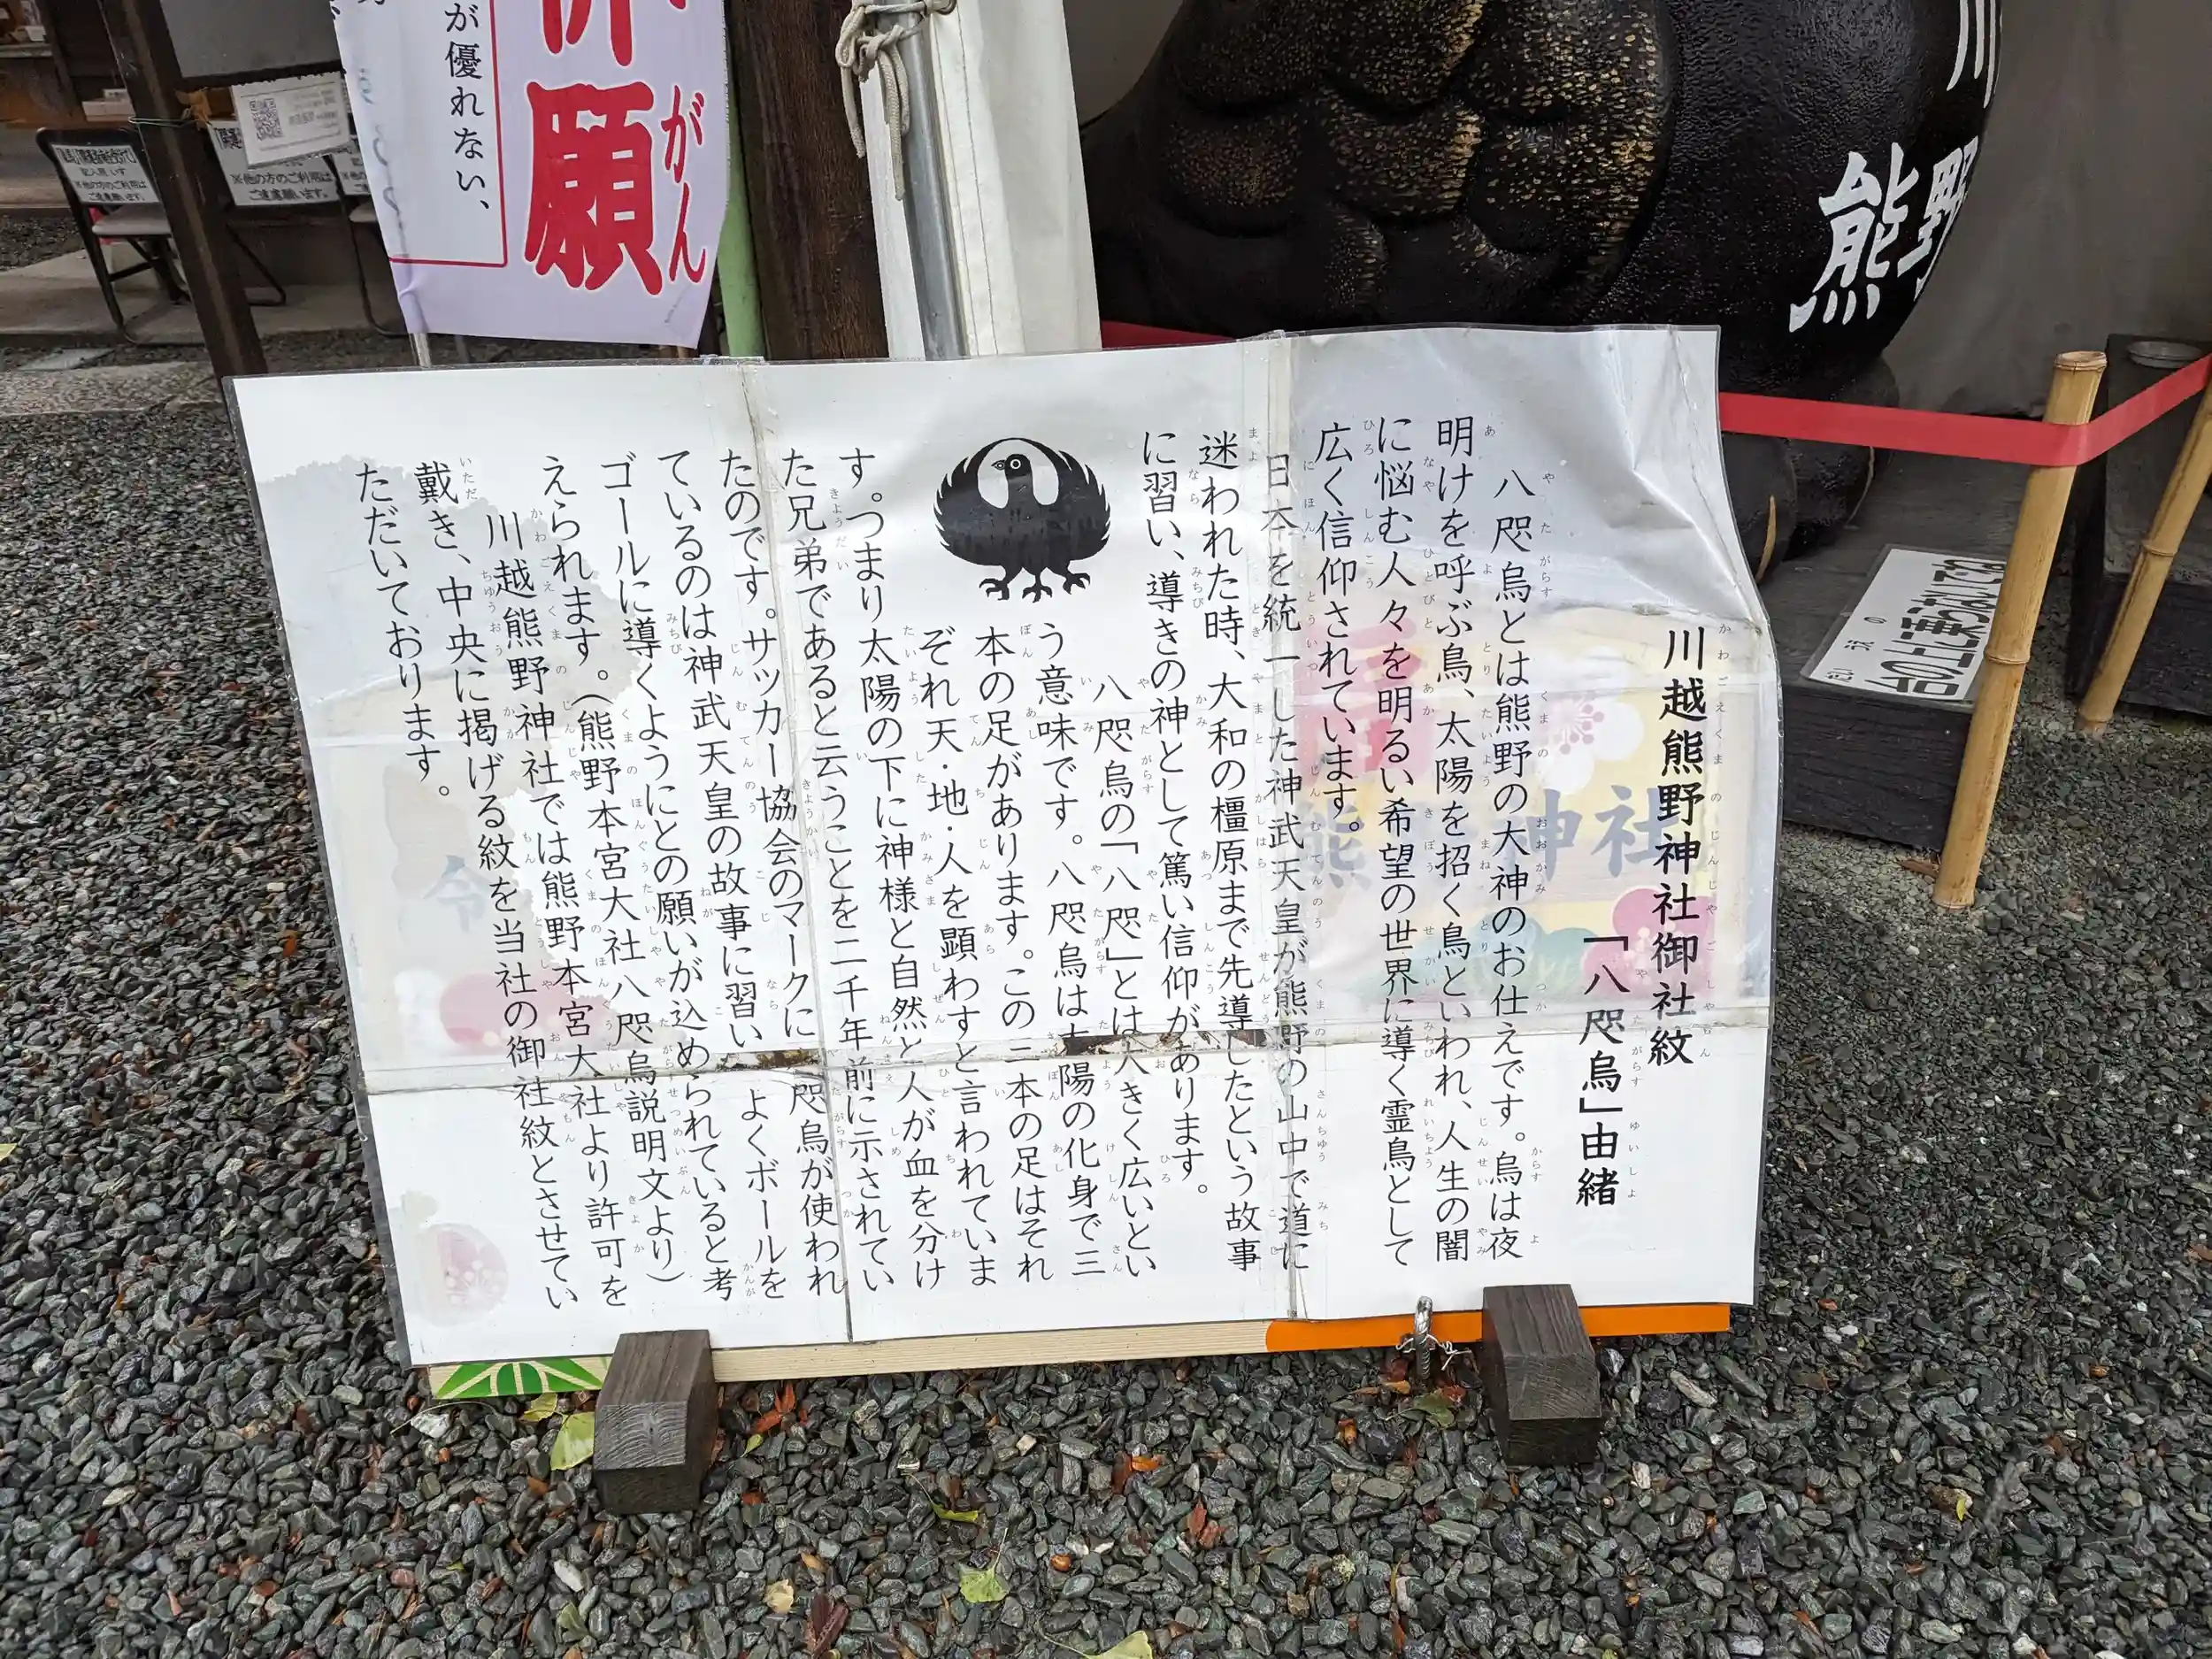 川越熊野神社御社紋
「八咫烏」由緒
八咫烏とは熊野の大神のお仕えです。烏は夜
明けを呼ぶ鳥、太陽を招く鳥といわれ、人生の闇
に悩む人々を明るい希望の世界に導く霊鳥として
広く信仰されています。
日本を統一した神武天皇が熊野の山中で道に
迷われた時、大和の橿原まで先導したという故事
に習い、導きの神として篤い信仰があります。
八咫烏の「八咫」とは大きく広いとい
う意味です。八咫烏は太陽の化身で三
本の足があります。この三本の足はそれ
ぞれ天・地・人を顕わすと言われていま
す。つまり太陽の下に神様と自然と人が血を分け
た兄弟であると云うことを二千年前に示されてい
たのです。サッカー協会のマークに
咫烏が使われ
ているのは神武天皇の故事に習い
よくボールを
ゴールに導くようにとの願いが込められていると考
えられます。(熊野本宮大社八咫烏説明文より)
川越熊野神社では熊野本宮大社より許可を
戴き、中央に掲げる紋を当社の御社紋とさせてい
ただいております。
願
がん
が優れない、
熊野
川
※他の方のご利用は
ご遠慮願います。
※他の方のご利用は
ご遠慮願います。
神社
令